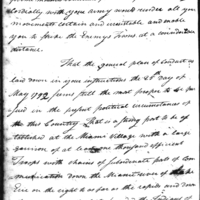 Cordially with your Army would render all your
movements certain and inevitable, and enable
you to strike the Enemys Towns at a considerable
distance.
That the general plan of Conduct as
laid down in your instructions the 25th day of
May 1792 seems still the most proper to be
in the present political circumstances of
the this Country. That is a strong post to be es
tablished at the Miami Village with a large
garrison of at least one thousand efficient
Troops with chains of subordinate posts of Com
munication down the Miami river of Lake
Erie on the right & so far as the rapids and down